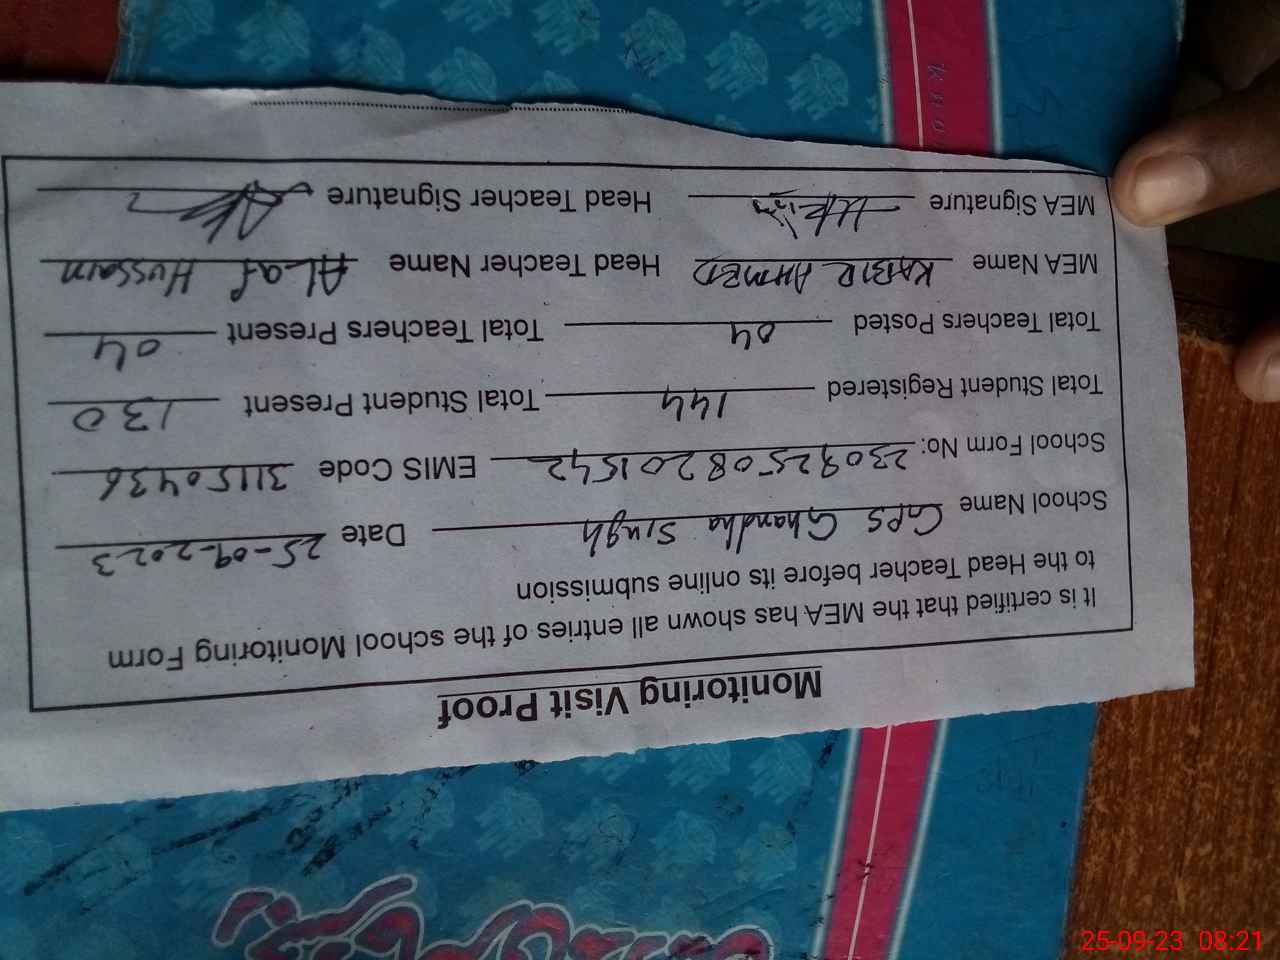 Monitoring Visit Proof
It is certified that the MEA has shown all entries of the school Monitoring Form
to the Head Teacher before its online submission
School Name GPS Ghandha Singh Date 25-09-2023
School Form No: 23092508201542 EMIS Code 31150436
Total Student Registered 144 Total Student Present 130
Total Teachers Posted 04 Total Teachers Present 04
MEA Name KABIR AHMED Head Teacher Name ALaf Hussain
MEA Signature Head Teacher Signature
25-09-23 08:21